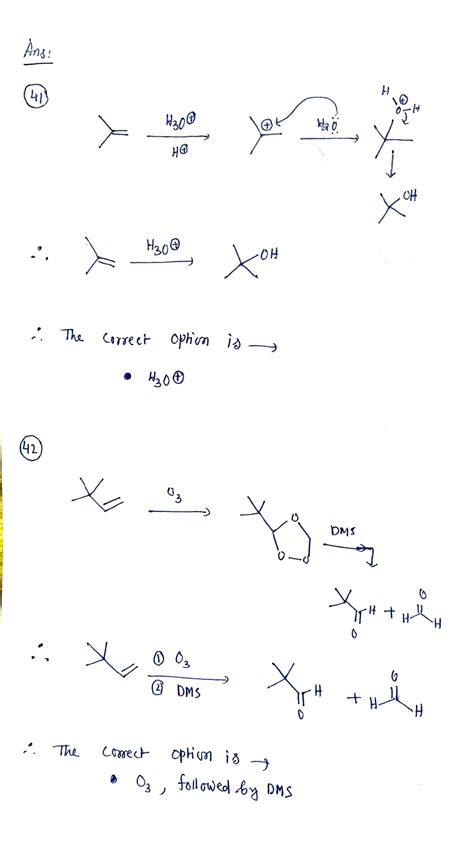 Ans:
41
H3O⊕
H⊕
⊕
H2Ö
H
⊕
O-H
OH
∴ H3O⊕
OH
∴ The correct option is →
• H3O⊕
42
O3
O
O-O
DMS
H + H H
O
O
∴ ① O3
② DMS
H
O
+ H H
O
∴ The correct option is →
• O3, followed by DMS